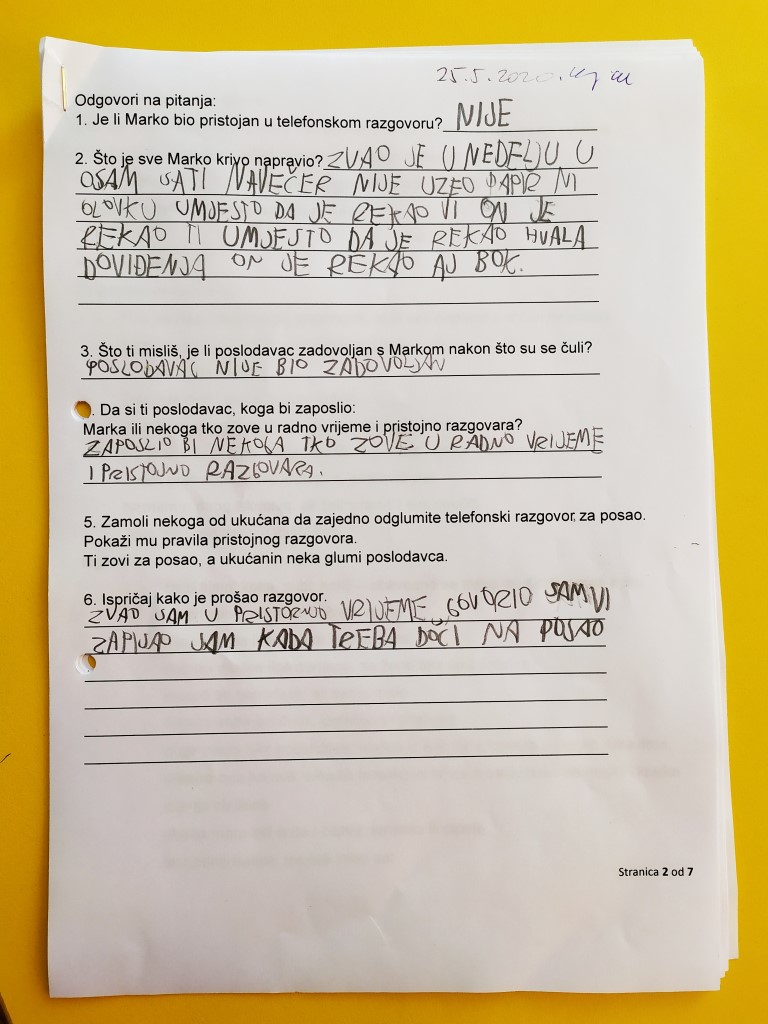 25.5.2020.
Odgovori na pitanja:
1. Je li Marko bio pristojan u telefonskom razgovoru? NIJE
2. Što je sve Marko krivo napravio? ZVAO JE U NEDELJU U
OSAM SATI NAVEČER NIJE UZEO PAPIR NI
OLOVKU UMJESTO DA JE REKAO VI ON JE
REKAO TI UMJESTO DA JE REKAO HVALA
DOVIĐENJA ON JE REKAO AJ BOK.
3. Što ti misliš, je li poslodavac zadovoljan s Markom nakon što su se čuli?
POSLODAVAC NIJE BIO ZADOVOLJAN
. Da si ti poslodavac, koga bi zaposlio:
Marka ili nekoga tko zove u radno vrijeme i pristojno razgovara?
ZAPOSLIO BI NEKOGA TKO ZOVE U RADNO VRIJEME
I PRISTOJNO RAZGOVARA.
5. Zamoli nekoga od ukućana da zajedno odglumite telefonski razgovor za posao.
Pokaži mu pravila pristojnog razgovora.
Ti zovi za posao, a ukućanin neka glumi poslodavca.
6. Ispričaj kako je prošao razgovor.
ZVAO SAM U VRIJEME GOVORIO SAM VI
SAM KADA TREBA DOĆI NA POSAO
Stranica 2 od 7